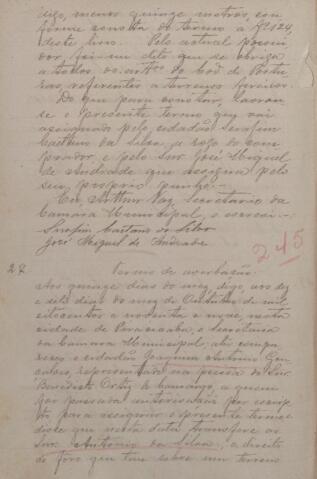 digo, menos quinze metros, con
forme consta do termo a fls 124,
deste livro. Pelo actual possui
dor foi-me dito que se obriga
a todos os artos do Cod. de Postu
ras referentes a terrenos foreiros.
Do que para constar, lavrou-
se o presente termo que vai
assignado pelo cidadão Serafim
Caetano da Silva, a rogo do com
prador, e pelo Snr José Miguel
de Andrade que assigna pelo
seu proprio punho.
Eu, Arthur Vaz, Secretario da
Camara Municipal, o escrevi.
Serafim Caetano da Silva
José Miguel de Andrade
245
27
Termo de averbação
Aos quinze dias do mez, digo, aos dez
e seis dias do mez de Outubro de mil
oitocentos e noventa e nove, nesta
cidade de , e Secretaria
da Camara Municipal, ahi compa
receu o cidadão Joaquim Antonio Gon
çalves, representado na pessoa do Snr
Benedicto Ortiz de Camargo, a quem
por pessoa autorisada por escrip
to para assignar o presente termo e
disse que nesta data transfere ao
Snr Antonio da Silva, o direito
de foro que tem sobre um terreno